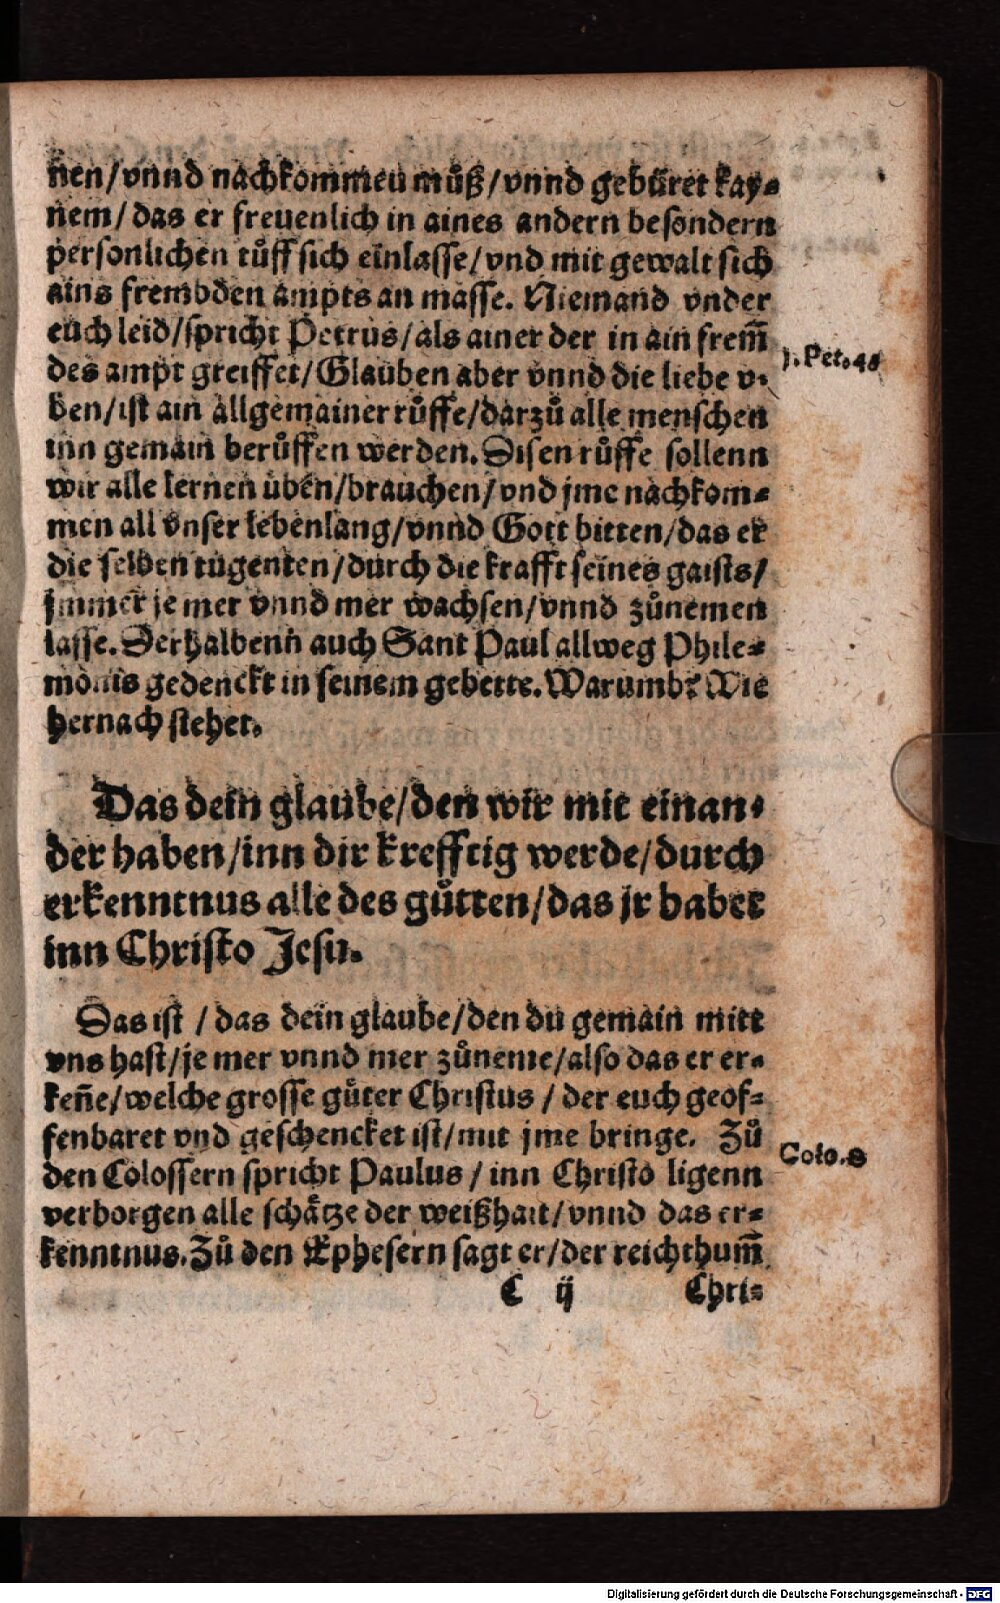 nen/vnnd nachkommen můß/vnnd gebüret kay⸗
nem/das er freuenlich in aines andern besondern
personlichen růff sich einlasse/vnd mit gewalt sich
ains frembden ampts an masse. Niemand vnder
euch leid/spricht Petrus/als ainer der in ain frem̃
des ampt greiffet/Glauben aber vnnd die liebe v⸗
j. Pet. 4.
ben/ist ain allgemainer růffe/darzů alle menschen
inn gemain berůffen werden. Disen růffe sollenn
wir alle lernen üben/brauchen/vnd jme nachkom⸗
men all vnser lebenlang/vnnd Gott bitten/das er
die selben tugenten/durch die krafft seines gaists/
jmmer je mer vnnd mer wachsen/vnnd zůnemen
lasse. Derhalbenn auch Sant Paul allweg Phile⸗
monis gedenckt in seinem gebette. Warumb? Wie
hernach stehet.
Das dein glaube/den wir mit einan⸗
der haben/inn dir krefftig werde/durch
erkenntnus alle des gůtten/das jr habet
inn Christo Jesu.
Das ist / das dein glaube/den du gemain mitt
vns hast/je mer vnnd mer zůneme/also das er er⸗
keñe/welche grosse gůter Christus / der euch geof⸗
fenbaret vnd geschencket ist/mit jme bringe. Zů
den Colossern spricht Paulus / inn Christo ligenn
Colo.
verborgen alle schätze der weißhait/vnnd das er⸗
kenntnus. Zů den Ephesern sagt er/der reichthum̃
C ij Chri⸗
Digitalisierung gefördert durch die Deutsche Forschungsgemeinschaft - DFG